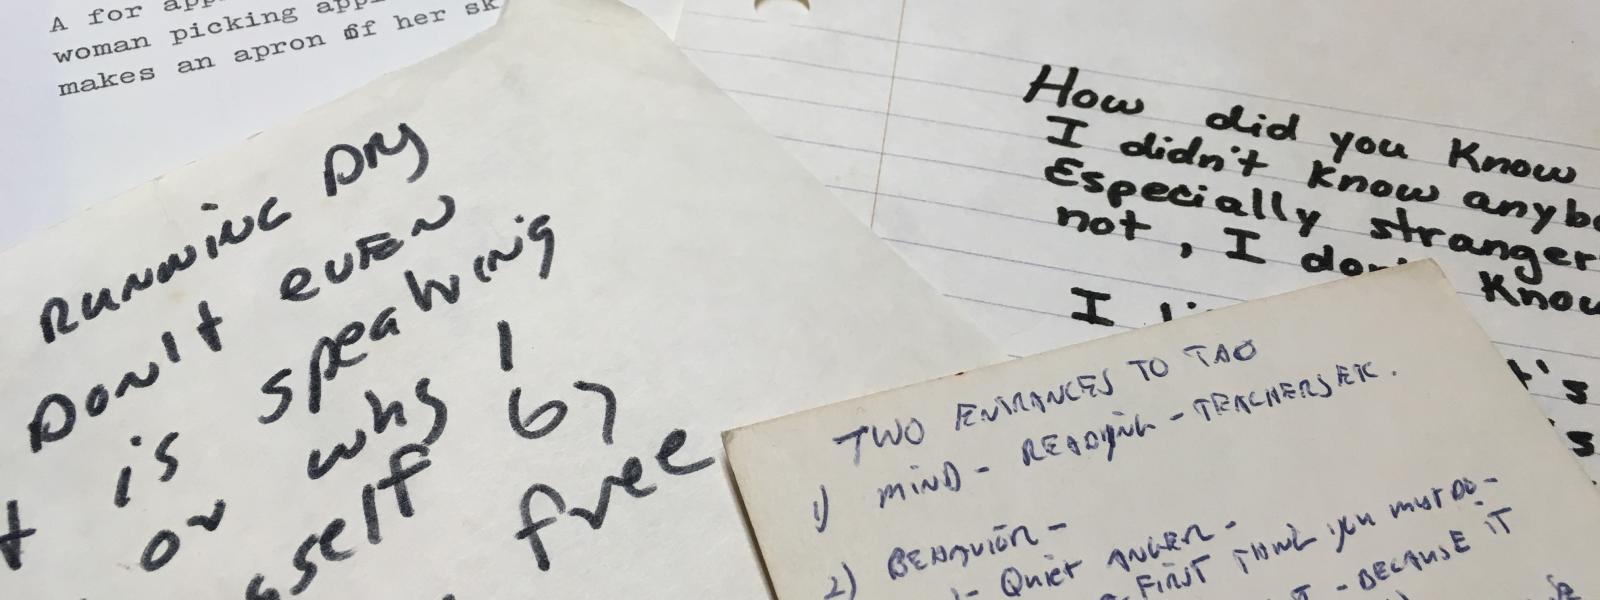 A for
woman picking
makes an apron of her
RUNNING DRY
DON't EVEN
is speaking
or why I
self by
free
How did you Know
I didn't Know
Especially
not, I Know
I
TWO ENTRANCES TO TAO
1) MIND - READING - TEACHERS ETC.
2) BEHAVIOR -
Quiet ANGER -
FIRST THING you must DO -
- BECAUSE IT